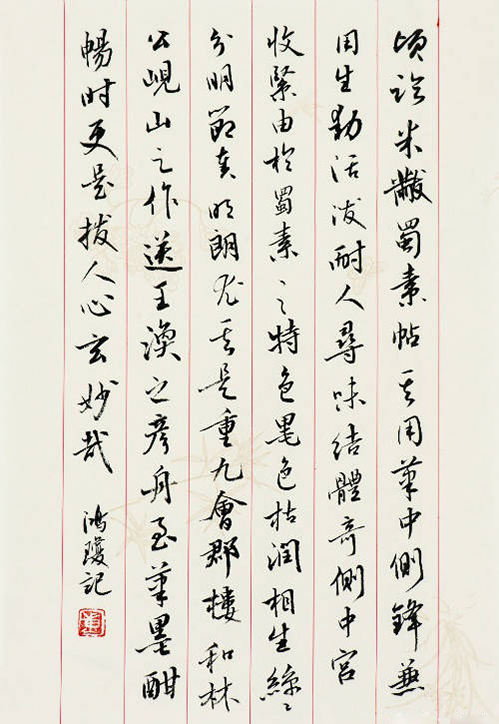 頃临米黻蜀素帖其用筆中側鋒兼
用生動活泼耐人尋味結體奇側中宮
收緊由於蜀素之特色墨色枯潤相生絲〻
分明節奏明朗尤其是重九會郡樓和林
公峴山之作送王渙之彦舟至筆墨酣
暢时更是拨人心玄妙哉 鴻瓊記